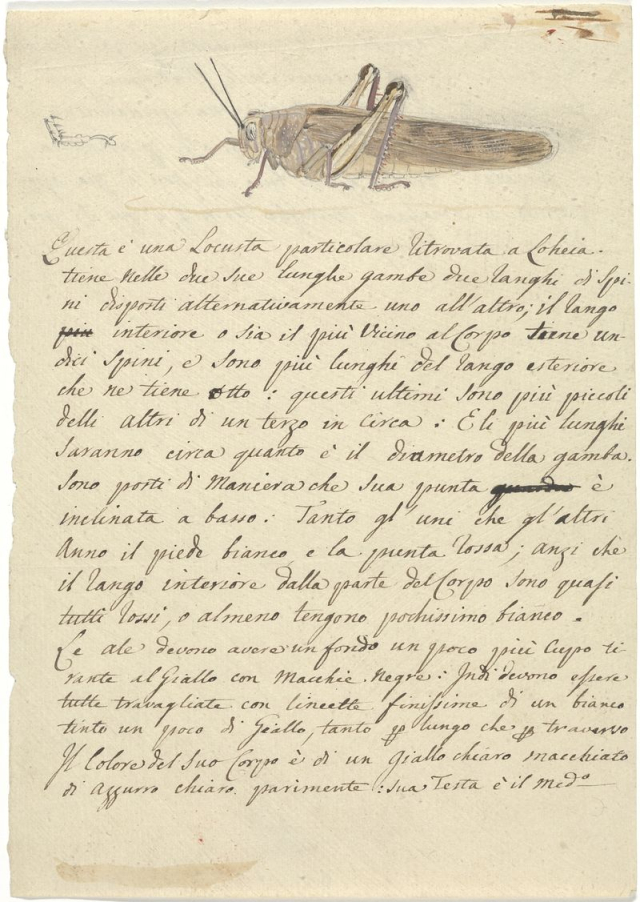 Questa è una Locusta particolare Ritrovata a Loheia.
tiene nelle due sue lunghe gambe due ranghi di Spi-
ni disposti alternativamente uno all'altro; il rango
più interiore o sia il più Vicino al Corpo tiene un-
dici Spini, e sono più lunghi del rango esteriore
che ne tiene otto: questi ultimi sono più piccoli
delli altri di un terzo in circa: E li più lunghi
saranno circa quanto è il diametro della gamba.
sono posti di Maniera che sua punta è
inclinata a basso: Tanto gl'uni che gl'altri
Anno il piede bianco e la punta rossa; anzi che
il rango interiore dalla parte del Corpo sono quasi
tutti rossi, o almeno tengono pochissimo bianco.
Le ale devono avere un fondo un poco più Cupo ti-
rante al Giallo con Macchie Negre: Indi devono essere
tutte travagliate con lineette finissime di un bianco
tinto un poco di Giallo, tanto p lungo che p traverso
Il Colore del suo Corpo è di un Giallo chiaro macchiato
di Azzurro chiaro. parimente: sua Testa è il medo